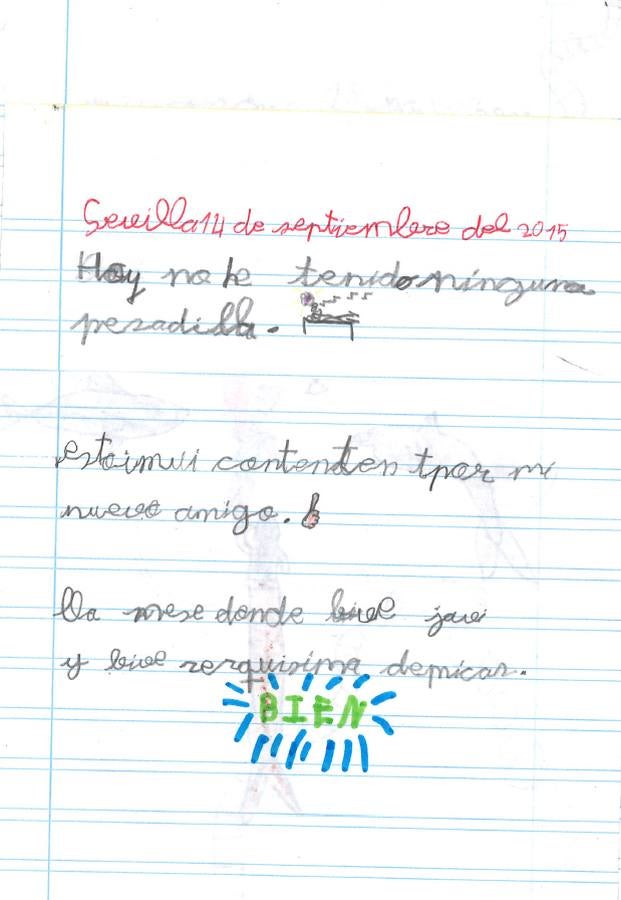 Sevilla 14 de septiembre del 2015
Hoy no he tenido ninguna
pesadilla.
estoimui contenten tpor mi
nuevo amigo.
lla mese donde bive javi
y bive zerquisima demicas.
BIEN